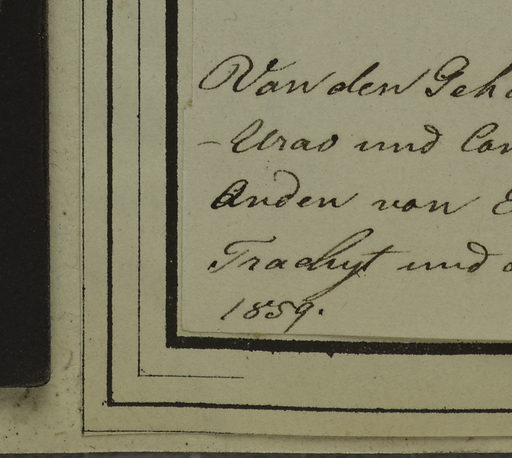 Van den Geh
-Urao und Con
Anden von E
Trachyt und d
1859.